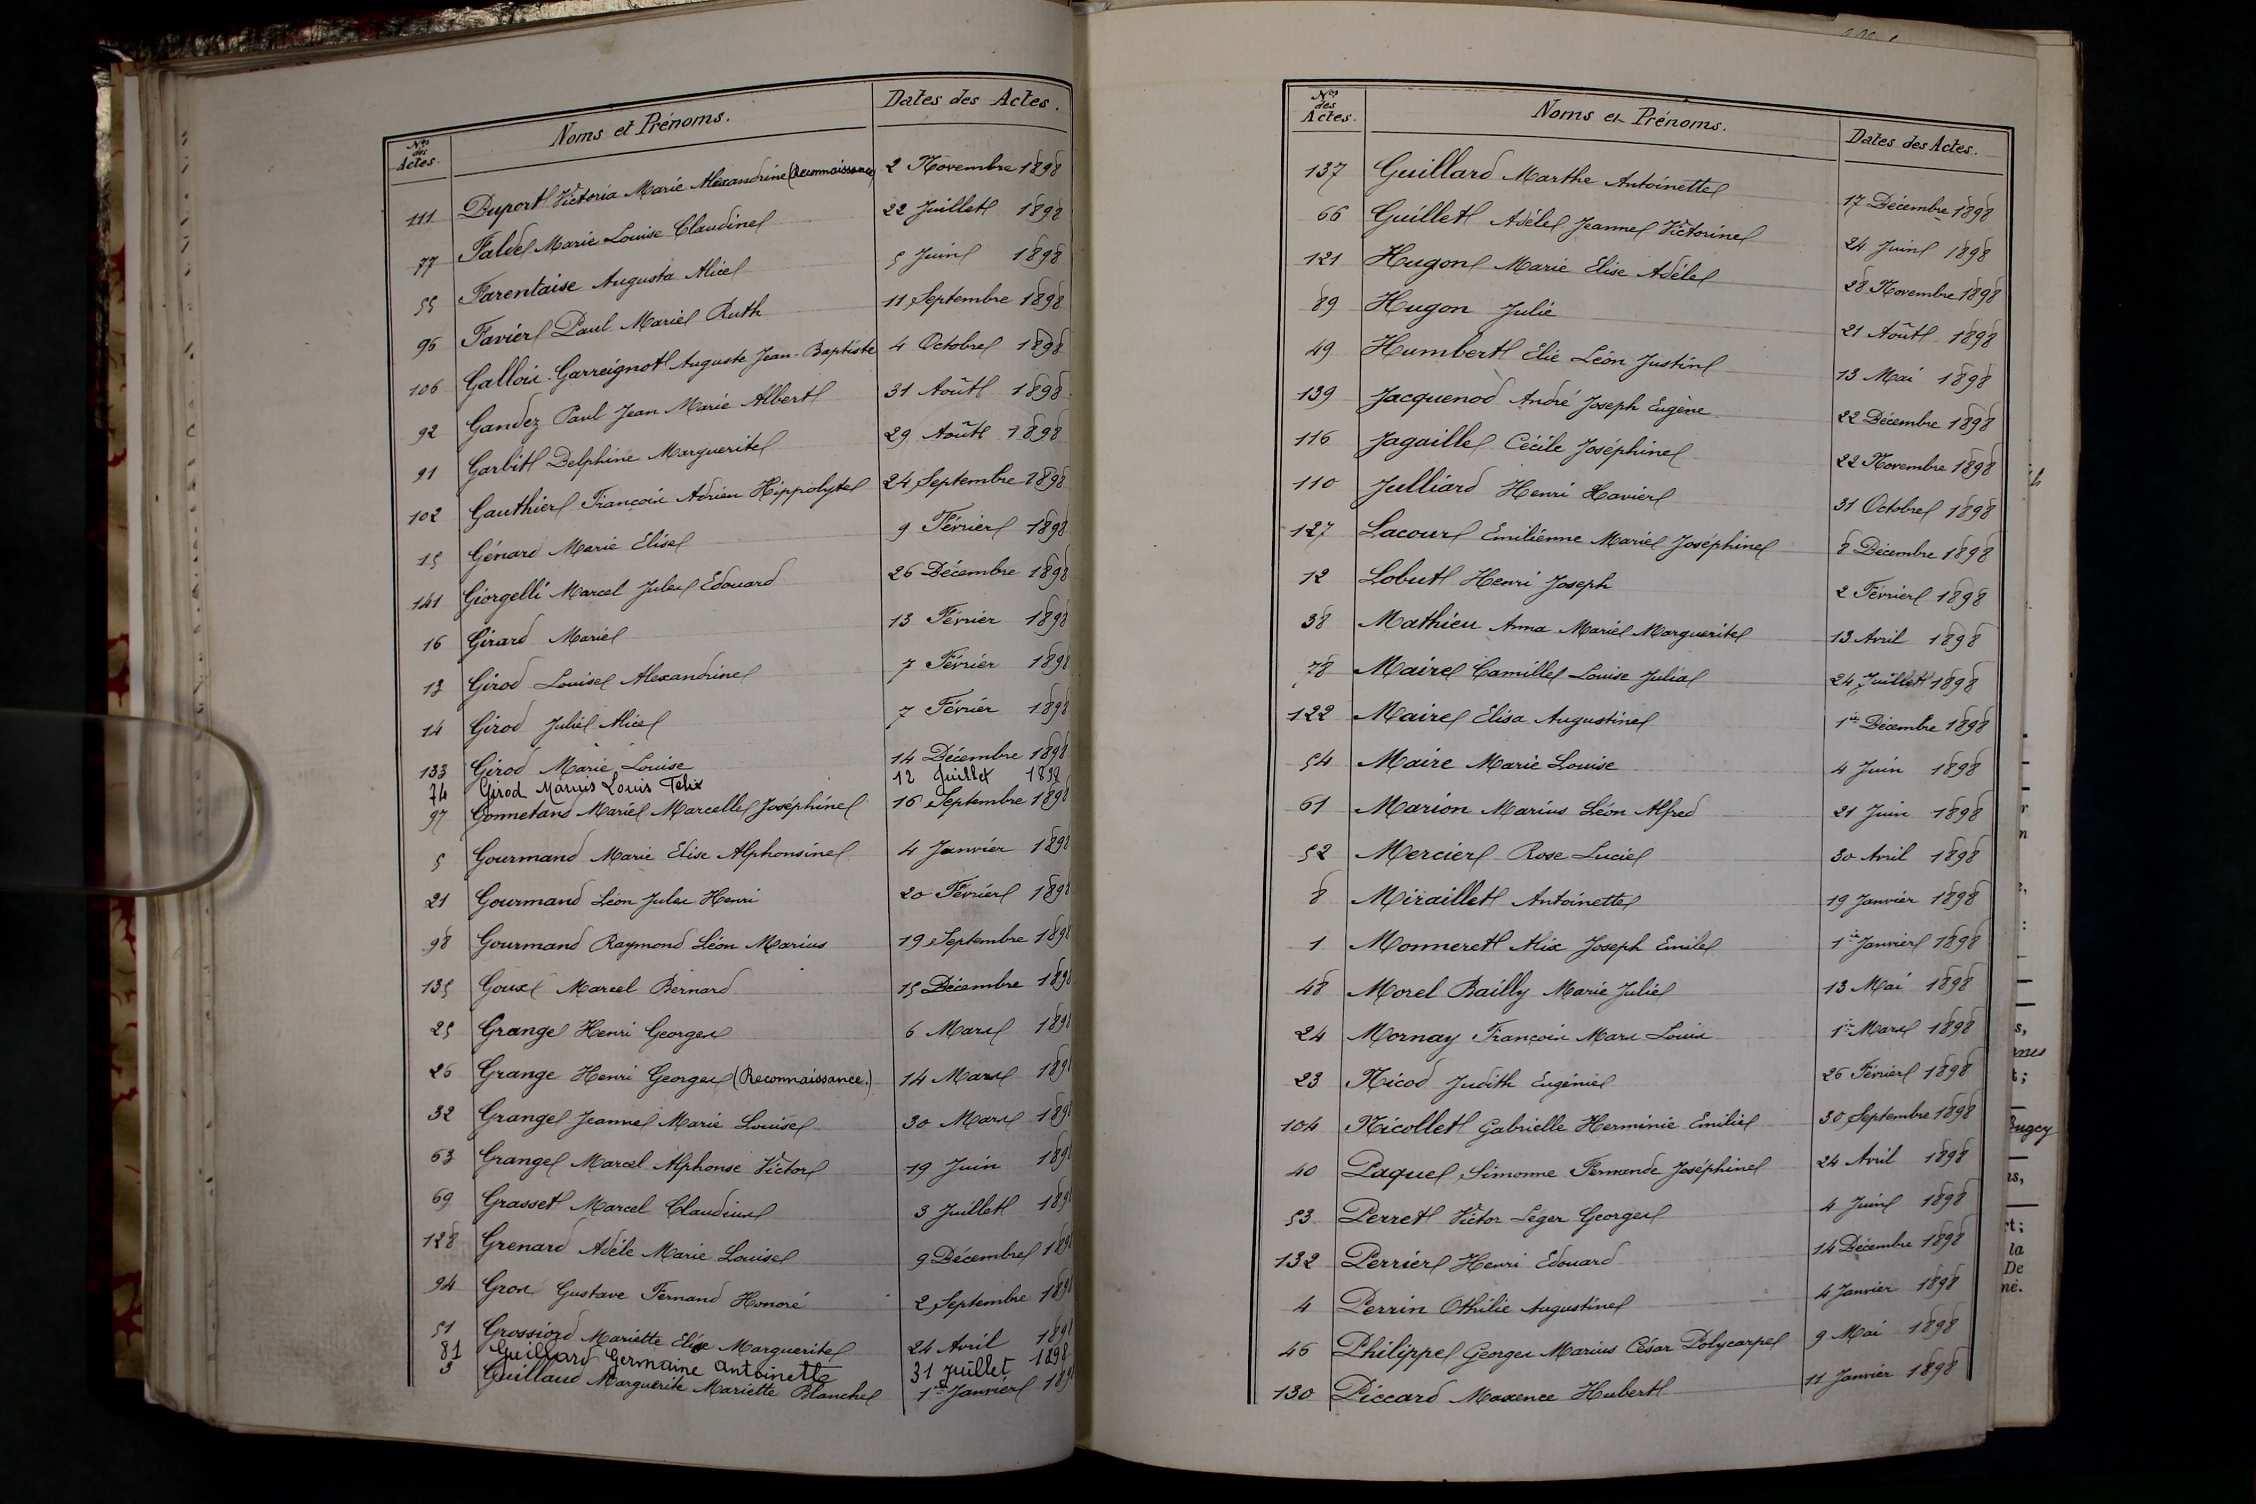 Nos des Actes. Noms et Prénoms. Dates des Actes.
111 Duport Victoria Marie Alexandrine (Reconnaissance) 2 Novembre 1898
77 Falde Marie Louise Claudine 22 Juillet 1898
55 Farentaise Augusta Alice 5 Juin 1898
96 Favier Paul Marie Ruth 11 Septembre 1898
106 Gallois-Garreignot Auguste Jean-Baptiste 4 Octobre 1898
92 Gandez Paul Jean Marie Albert 31 Août 1898
91 Garbit Delphine Marguerite 29 Août 1898
102 Gauthier François Adrien Hippolyte 24 Septembre 1898
15 Génard Marie Elise 9 Février 1898
141 Giorgelli Marcel Jules Edouard 26 Décembre 1898
16 Girard Marie 13 Février 1898
13 Girod Louise Alexandrine 7 Février 1898
14 Girod Julie Alice 7 Février 1898
133 Girod Marie Louise 14 Décembre 1898
74 Girod Marius Louis Felix 12 Juillet 1898
97 Gonnetand Marie Marcelle Joséphine 16 Septembre 1898
5 Gourmand Marie Elise Alphonsine 4 Janvier 1898
21 Gourmand Léon Jules Henri 20 Février 1898
98 Gourmand Raymond Léon Marius 19 Septembre 1898
135 Goux Marcel Bernard 15 Décembre 1898
25 Grange Henri Georges 6 Mars 1898
26 Grange Henri Georges (Reconnaissance.) 14 Mars 1898
32 Grange Jeanne Marie Louise 30 Mars 1898
63 Grange Marcel Alphonse Victor 19 Juin 1898
69 Grasset Marcel Claudius 3 Juillet 1898
128 Grenard Adèle Marie Louise 9 Décembre 1898
94 Gros Gustave Fernand Honoré 2 Septembre 1898
51 Grossiord Mariette Elise Marguerite 24 Avril 1898
81 Guillard Germaine Antoinette 31 Juillet 1898
3 Guillaud Marguerite Mariette Blanche 1er Janvier 189
Nos des Actes. Noms et Prénoms. Dates des Actes.
137 Guillard Marthe Antoinette 17 Décembre 1898
66 Guillet Adèle Jeanne Victorine 24 Juin 1898
121 Hugon Marie Elise Adèle 28 Novembre 1898
89 Hugon Julie 21 Août 1898
49 Humbert Elie Léon Justin 13 Mai 1898
139 Jacquenod André Joseph Eugène 22 Décembre 1898
116 Jagaille Cécile Joséphine 22 Novembre 1898
110 Julliard Henri Xavier 31 Octobre 1898
127 Lacour Emilienne Marie Joséphine 8 Décembre 1898
12 Lobut Henri Joseph 2 Février 1898
38 Mathieu Anna Marie Marguerite 13 Avril 1898
78 Maire Camille Louise Julia 24 Juillet 1898
122 Maire Elisa Augustine 1er Décembre 1898
54 Maire Marie Louise 4 Juin 1898
61 Marion Marius Léon Alfred 21 Juin 1898
52 Mercier Rose Lucie 30 Avril 1898
8 Miraillet Antoinette 19 Janvier 1898
1 Monneret Alix Joseph Emile 1er Janvier 1898
48 Morel Bailly Marie Julie 13 Mai 1898
24 Mornay François Marc Louis 1er Mars 1898
23 Nicod Judith Eugénie 26 Février 1898
104 Nicollet Gabrielle Herminie Emilie 30 Septembre 1898
40 Paque Simonne Fernande Joséphine 24 Avril 1898
53 Perret Victor Léger Georges 4 Juin 1898
132 Perrier Henri Edouard 14 Décembre 1898
4 Perrin Othilie Augustine 4 Janvier 1898
46 Philippe Georges Marius César Polycarpe 9 Mai 1898
130 Piccard Maxence Hubert 11 Janvier 1898